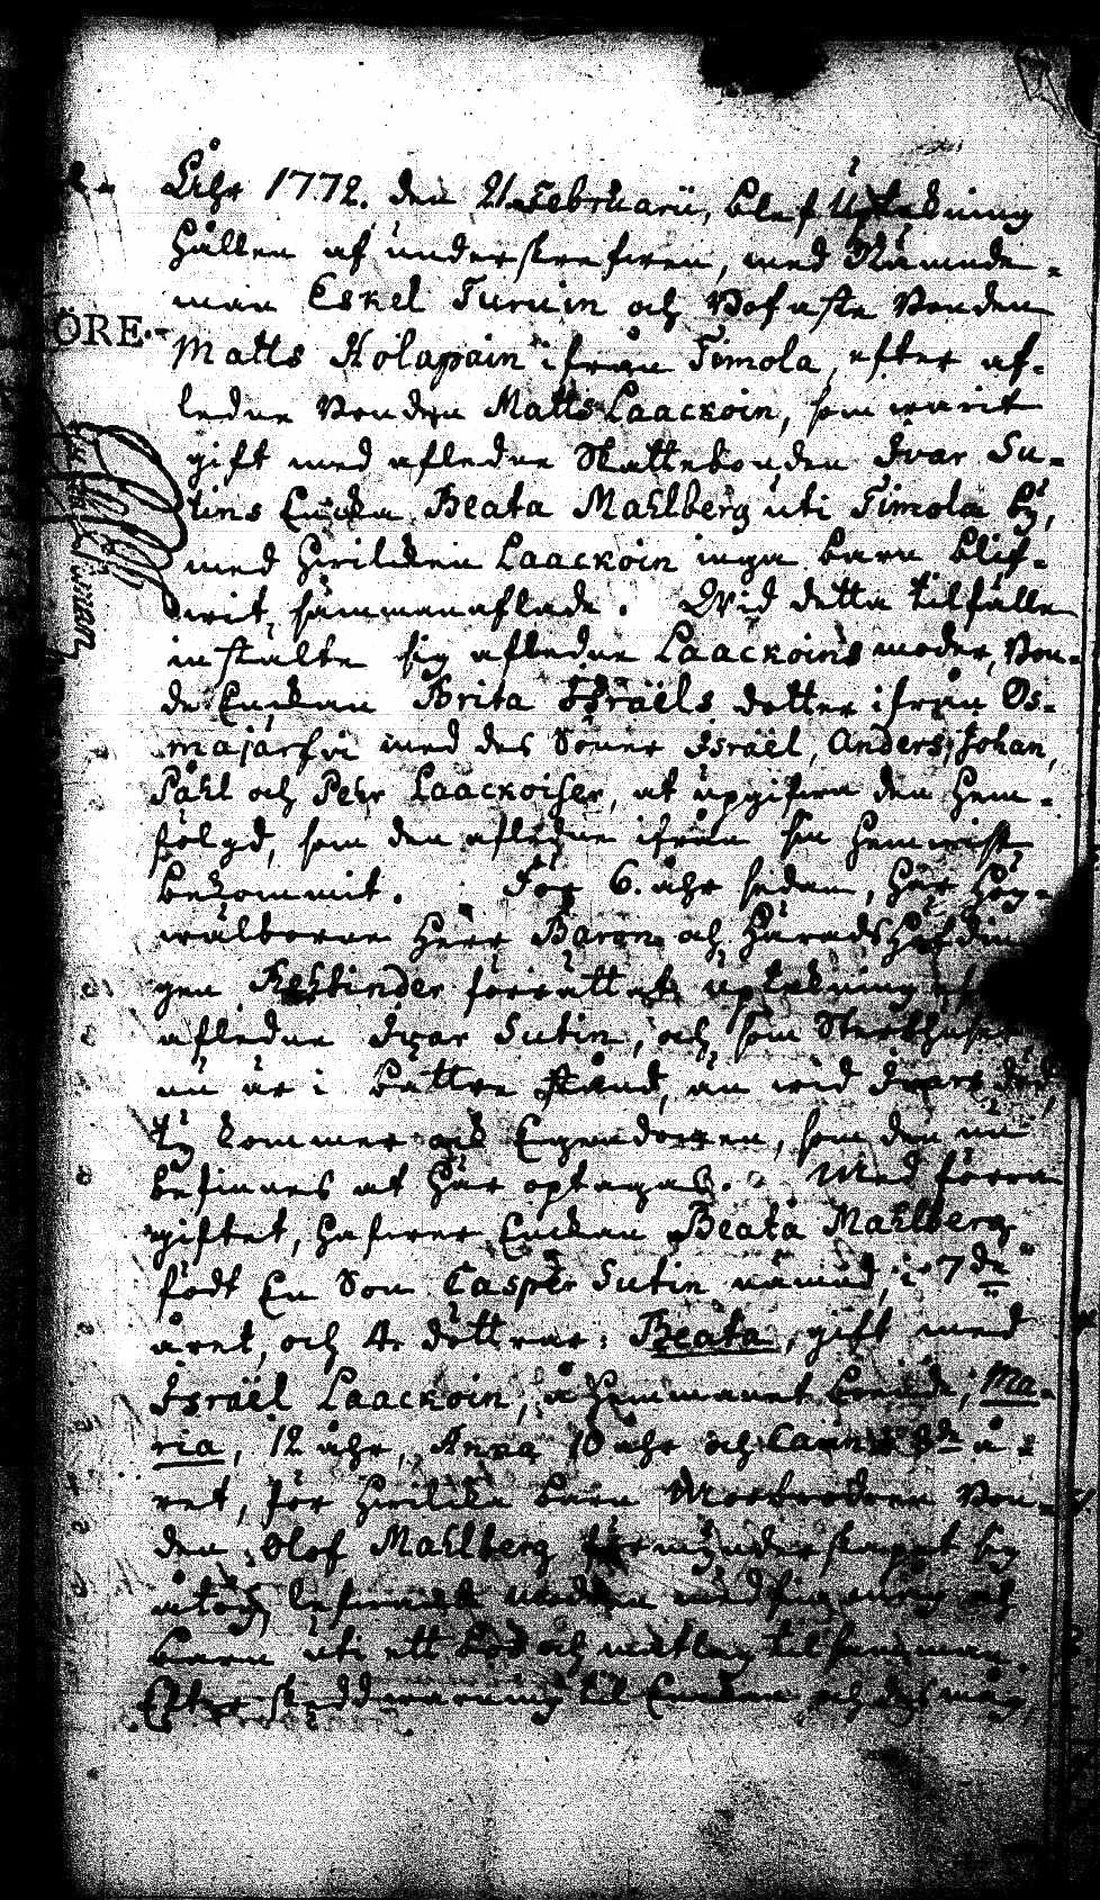 Åhr 1772. den 21 Februarii, blef Uptekning
hållen af underskrefwen, med Nämnde-
man Eskel Turuin och Bofaste Bonden
ÖRE.
Matts Kolapain ifrån Timola, efter af-
ledne Bonden Matts Laackoin, som warit
gift med afledne Skattebonden Ivar Su-
tins Encka Beata Mahlberg uti Timola by,
med hwilcken Laackoin inga barn blif-
wit sammanaflade. Wid detta tilfälle
instälte sig afledne Laackoins moder, Bon-
de Enckan Brita Israëls dotter ifrån Os-
majärfwi med des Söner Israël, Anders, Johan,
Påhl och Pehr Laackoiser, at upgifwa den hem-
fölgd, som den afledne ifrån sin hemwist
bekommit. För 6. åhr sedan, har Hög-
wälborne Herr Baron och Häradshöfdin
gen Rehbinder förrättat uptekning
afledne Ivar Sutin, och som Sterbhuset
nu är i battre stånd, än wid Ivars död,
ty kommer ock Egendomen, som den nu
befinnes at här optagas. Med förra
giftet, hafwer Enckan Beata Mahlberg
födt En Son Casper Sutin nämnd, i 7de
året, och 4. döttrar: Beata, gift med
Israël Laackoin, å Hemmanet boende; Ma-
ria, 12 åhr, Anna 10 åhr och å-
ret, för hwilcka barn Morbrodren Bon-
den Olof Mahlberg förmynderskapet sig
åtog,
barn uti ett och matlag tilsamman.
Efter skedd warning til Enckan och des måg